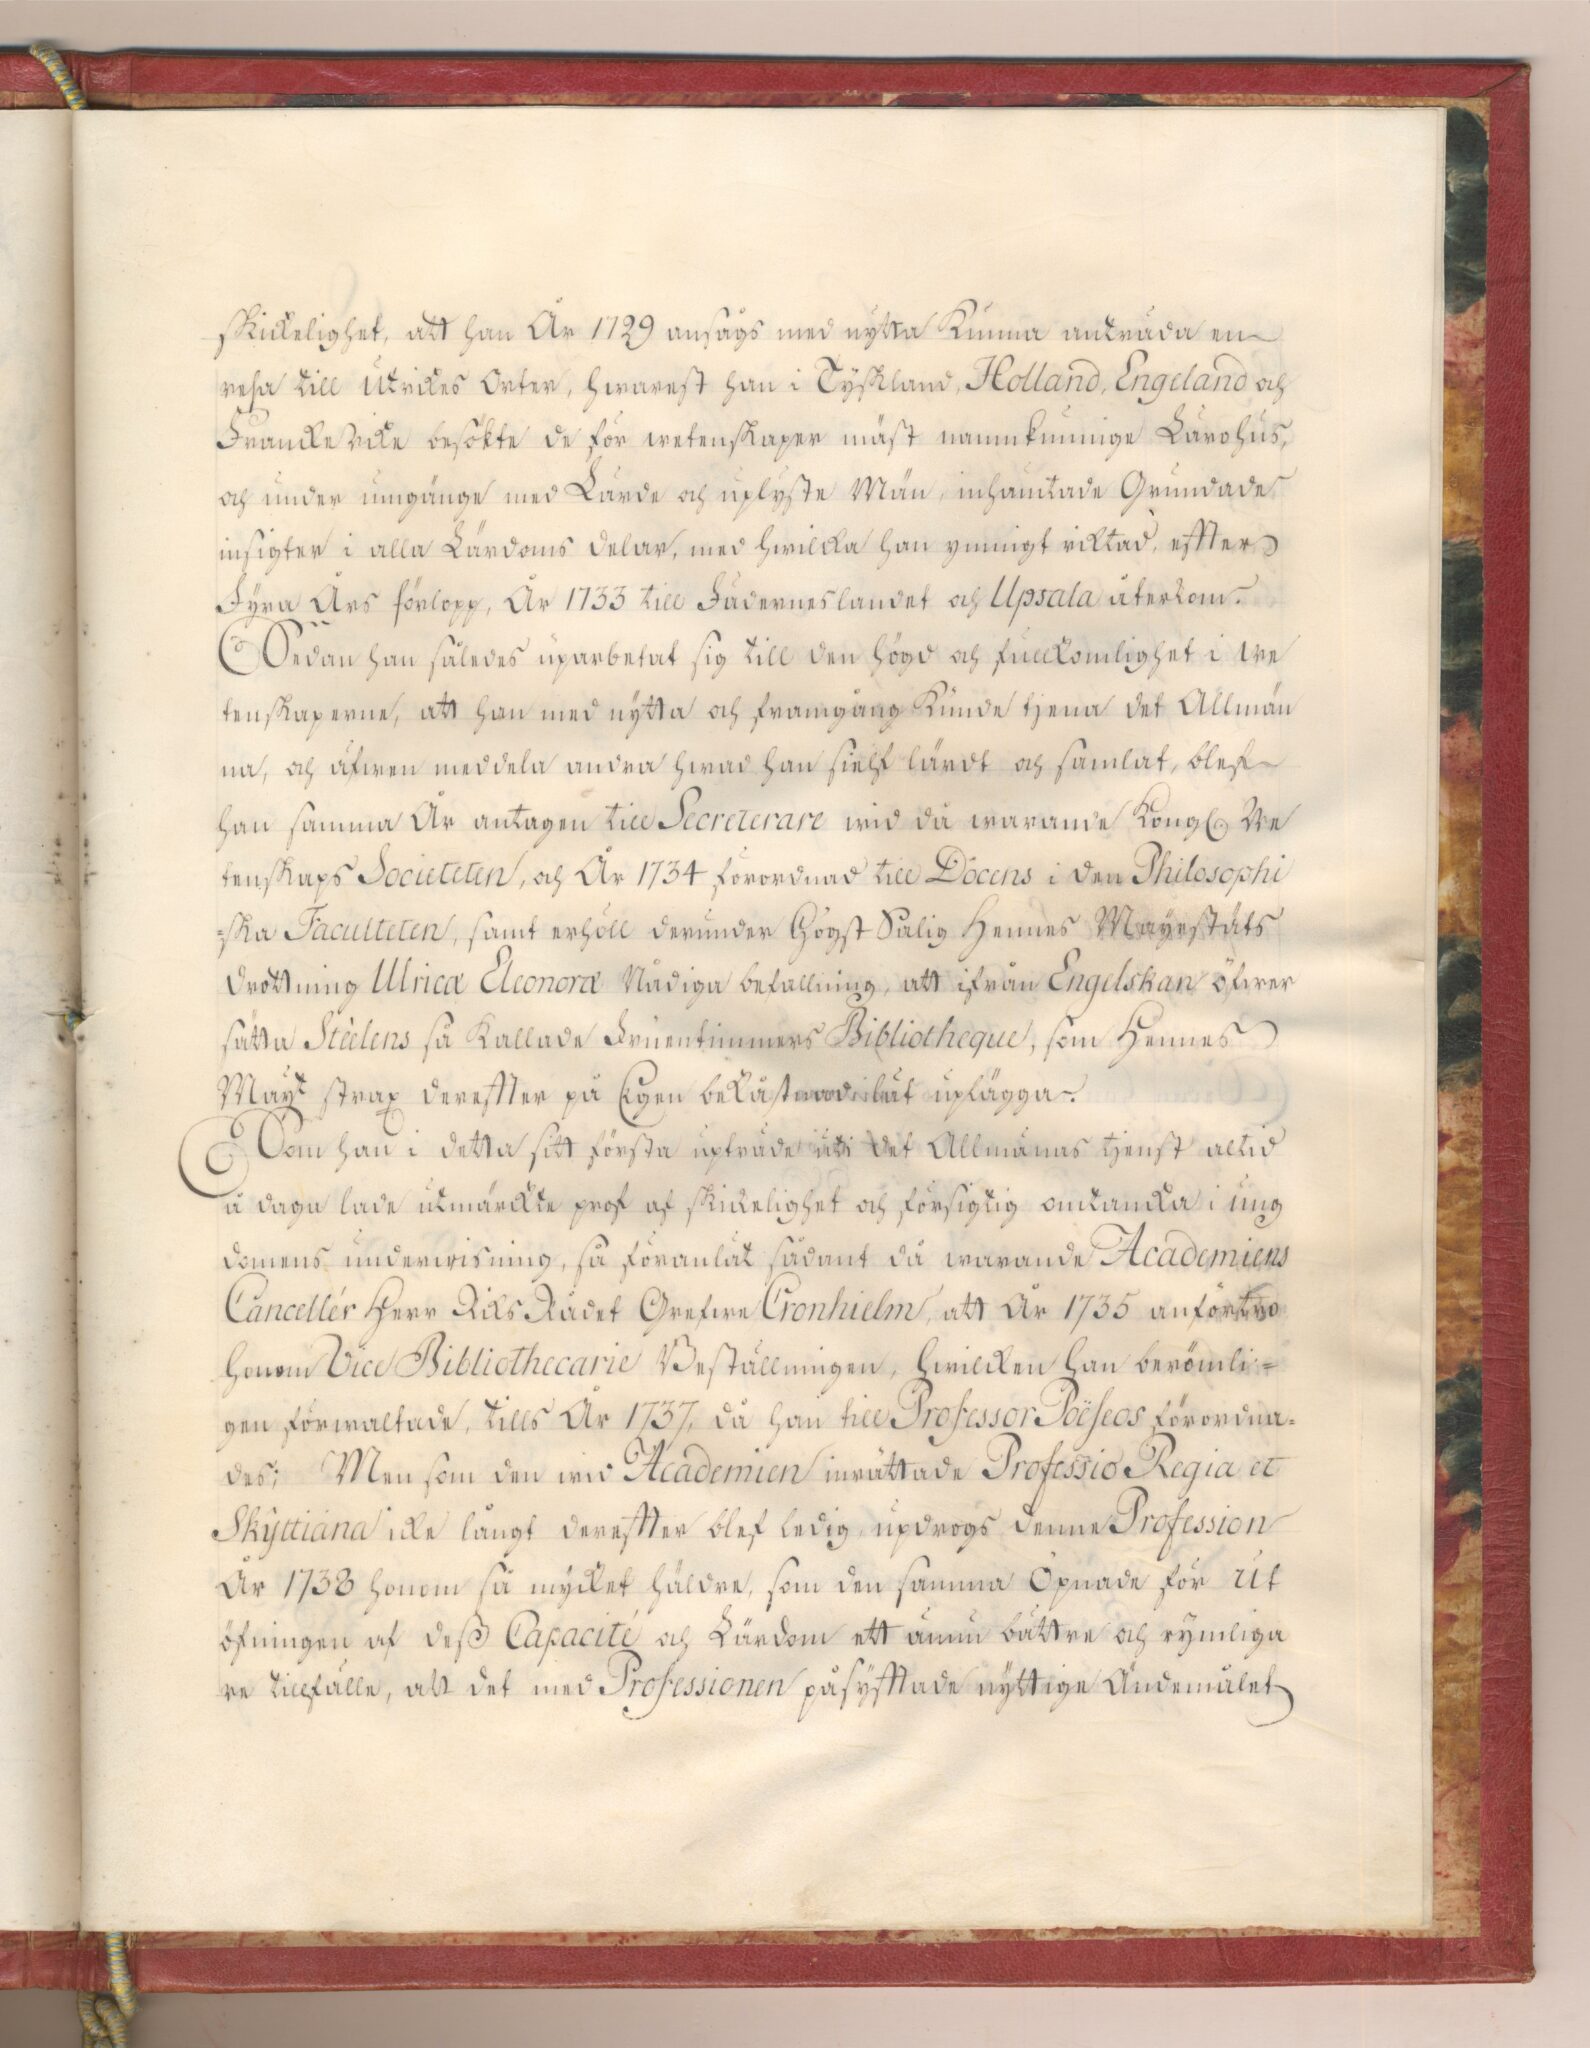 skickelighet, att han År 1729 ansågs med nytta kunna anträda en
resa till Utrikes Orter, hwarest han i Tyskland, Holland, Engeland och
Franckerike besökte de för wetenskaper mäst namnkunnige Lärohus,
och under umgänge med Lärde och uplyste Män, inhämtade Grundade
insigter i alla Lärdoms delar, med hwilcka han ymnigt riktad, effter
Fyra Års förlopp, År 1733 till Fäderneslandet och Upsala återkom.
Sedan han således uparbetat sig till den högd och fullkomlighet i We
tenskaperne, att han med nytta och framgång Kunde tjena det Allmän
na, och äfwen meddela andra hwad han sielf lärdt och samlat, blef
han samma År antagen till Secreterare wid då warande Kongl. We
tenskaps Societeten, och År 1734 förordnad till Docens i den Philosophi
=ska Faculteten, samt erhöll derunder Högst Salig Hennes Mayestäts
Drottning Ulricæ Eleonoræ Nådiga befallning, att ifrån Engelskan öfwer
sätta Stèelens så Kallade Fruentimmers Bibliotheque, som Hennes
Mayt strax dereffter på Egen bekåstnad lät uplägga.
Som han i detta sitt första upträde uti det Allmänas tjenst altid
å daga lade utmärckte prof af skickelighet och försigtig omtancka i ung
domens underwisning, så föranlät sådant då warande Academiens
Cancellér Herr Riks Rådet Grefwe Cronhielm, att År 1735 anförtro
honom Vice Bibliothecarie Beställningen, hwilcken han berömli=
gen förwaltade, tills År 1737, då han till Professor Poëseos förordna=
des; Men som den wid Academien inrättade Professio Regia et
Skyttiana icke långt dereffter blef ledig, updrogs denne Profession
År 1738 honom så mycket häldre, som den samma Öpnade för Ut
öfningen af deß Capacité och Lärdom ett ännu bättre och rymliga
re tillfälle, att det med Professionen påsyfftade nyttige Ändemålet